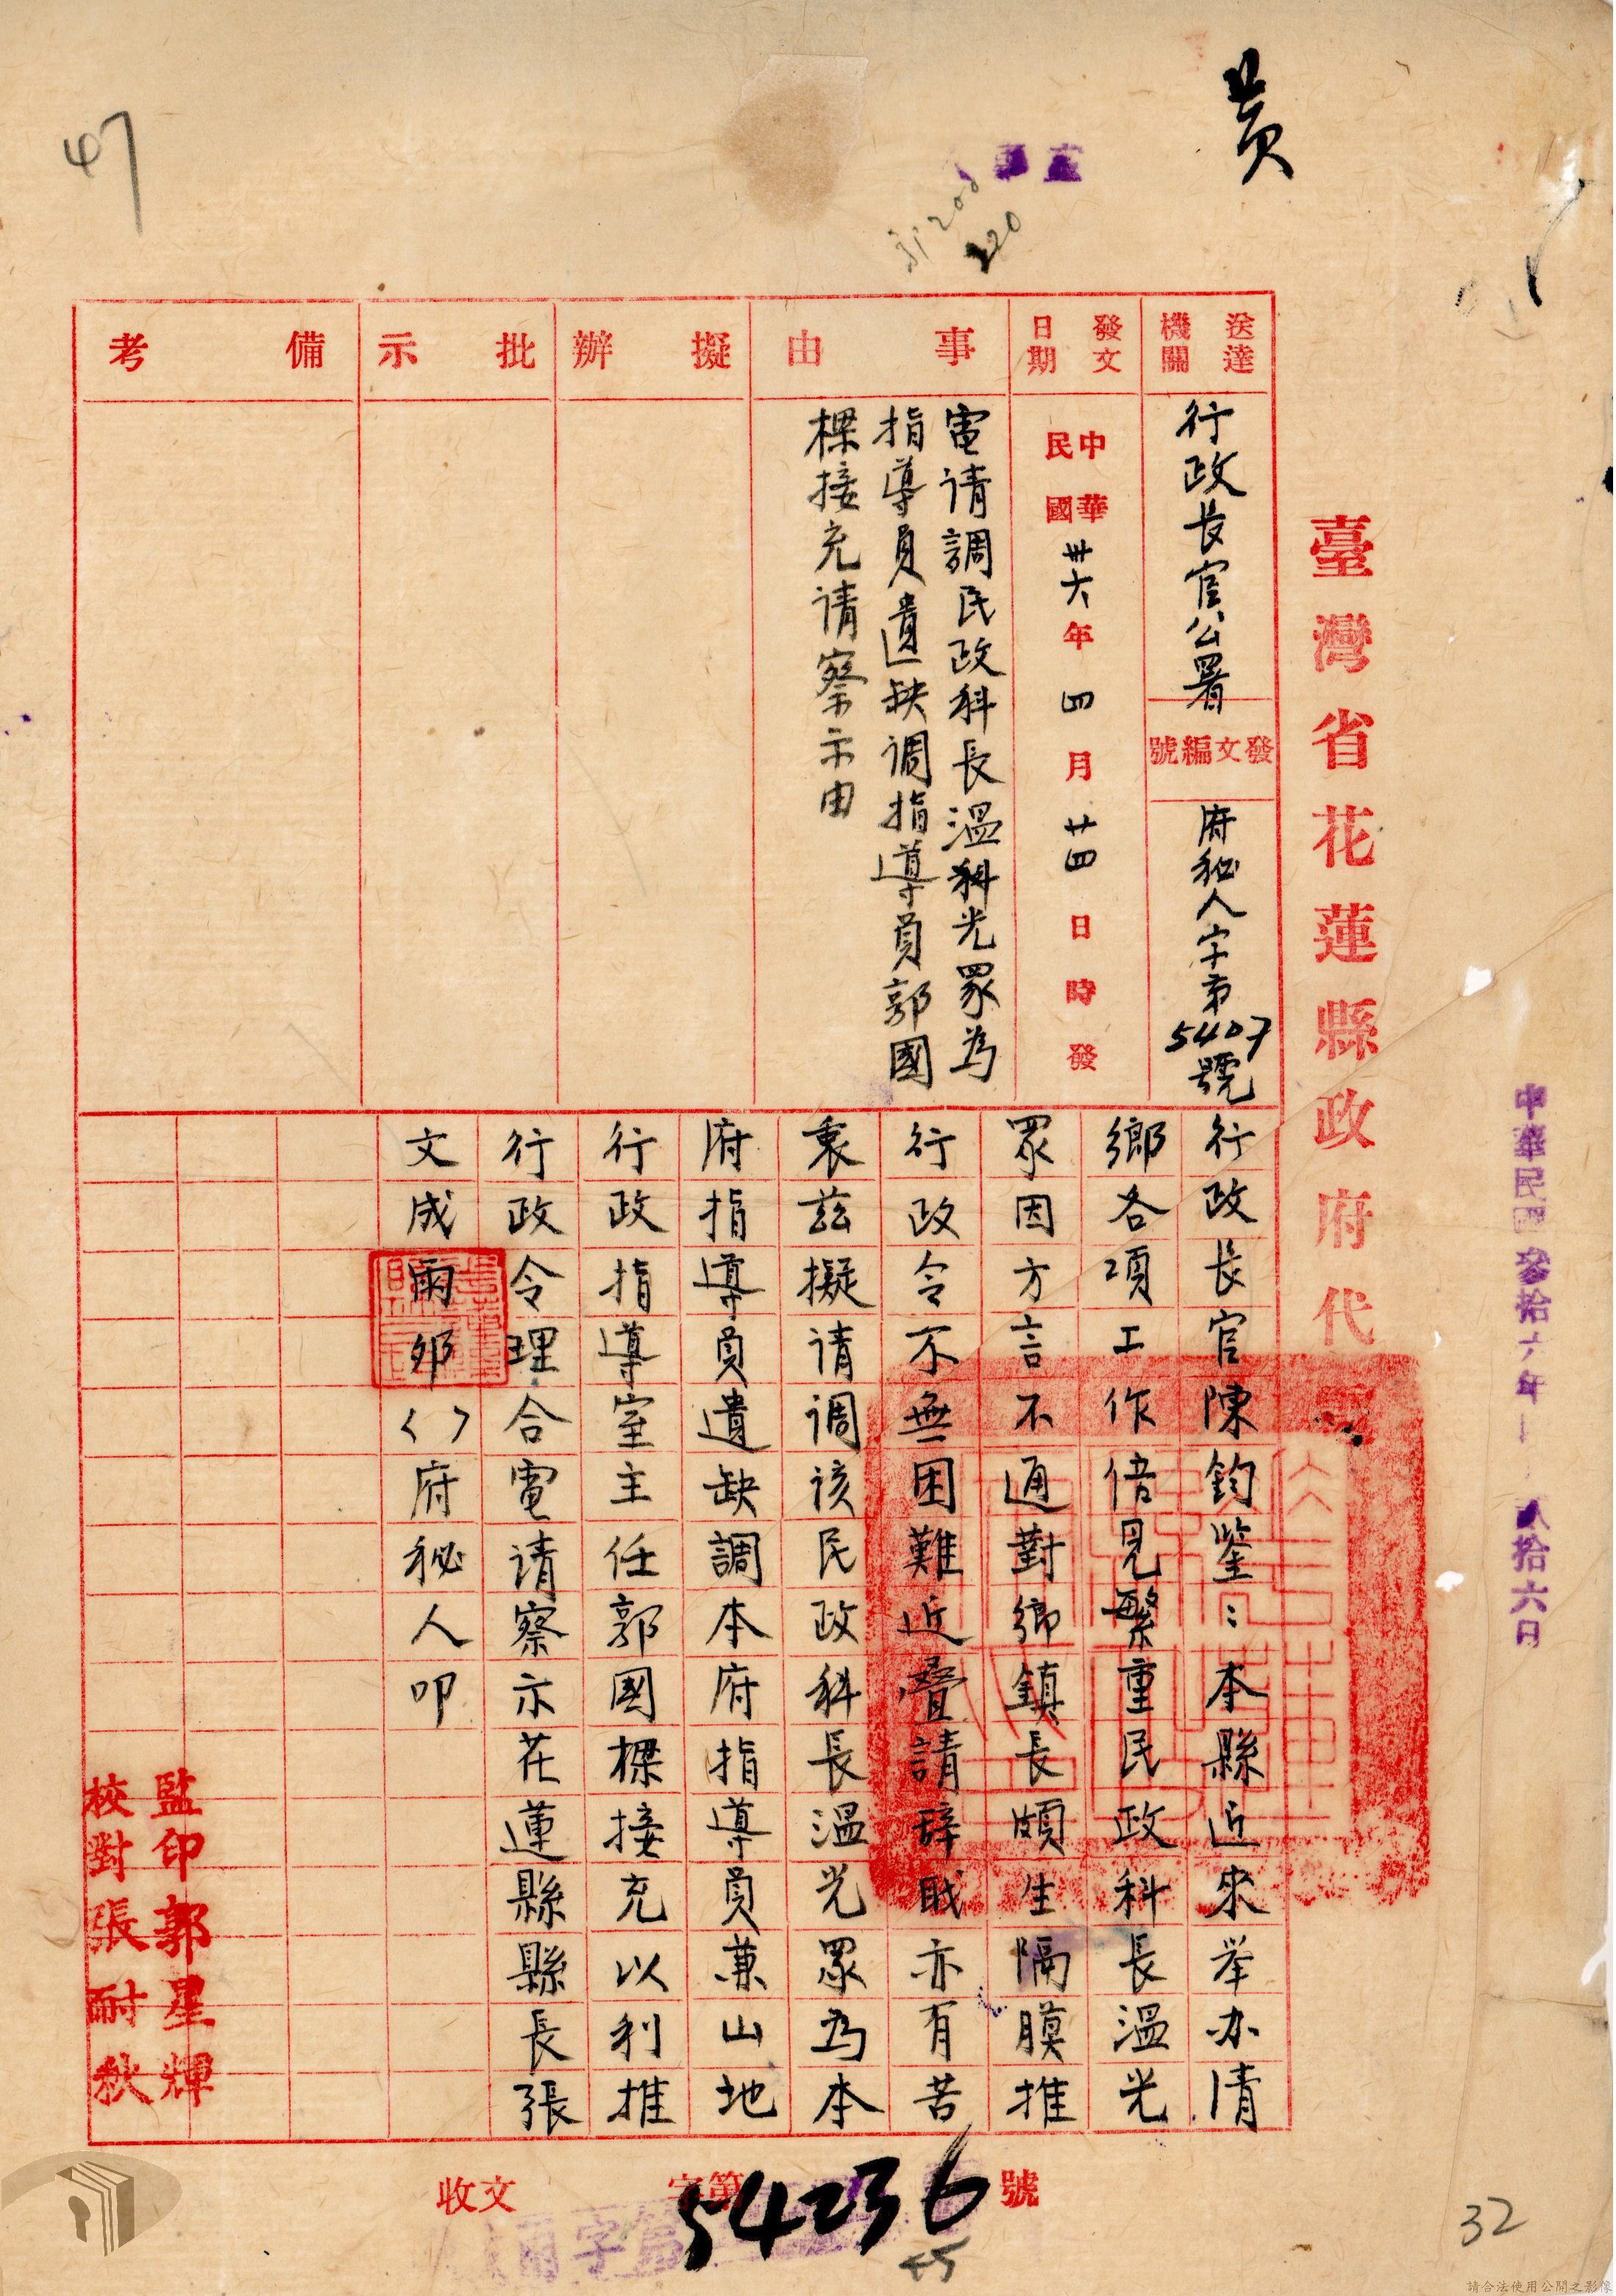 黄
47
臺灣省花蓮縣政府代
送達機關
行政長官公署
發文編號
府秘人字第5407號
發文日期
中華民國卅六年四月廿四日時發
事由
電请調民政科長温科光眾為
指導員遺缺调指導員郭國
樑接充请察示由
擬辦
批示
備考
行政長官陳鈞鑒：本縣近來举办清
鄉各項工作倍見繁重民政科長温光
眾因方言不通對鄉鎮長頗生隔膜推
行政令不無困難近疊請辞职亦有苦
衷兹擬请调该民政科長温光眾為本
府指導員遺缺調本府指導員兼山地
行政指導室主任郭國樑接充以利推
行政令理合電请察示花蓮縣縣長張
文成丽卯〈〉府秘人叩
監印郭星輝
校對張耐秋
中華民國參拾六年
貳拾六日
收文
字第54236號
45
32
請合法使用公開之影像